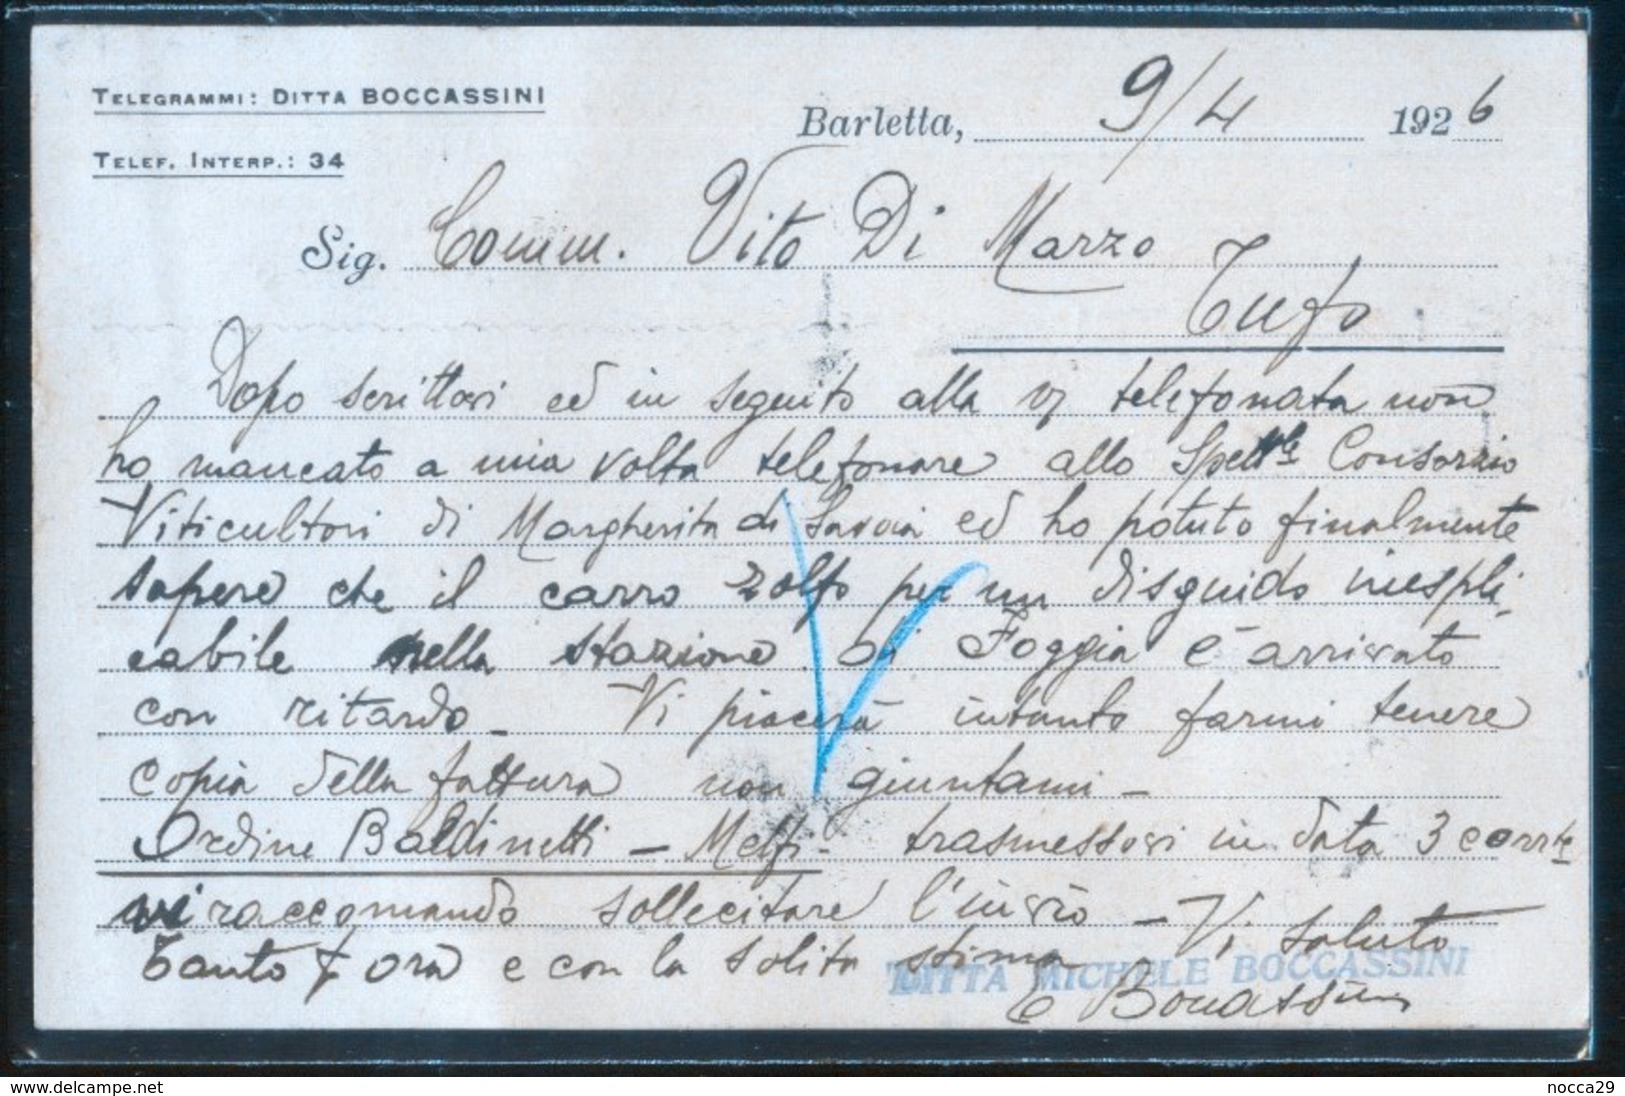 TELEGRAMMI: DITTA BOCCASSINI
TELEF. INTERP.: 34
Barletta, 9/4 1926
Sig. Comm. Vito Di Marzo
Tufo
Dopo scrittovi ed in seguito alla v/ telefonata non
ho mancato a mia volta telefonare allo Spett.le Consorzio
Viticultori di Margherita di Savoia ed ho potuto finalmente
sapere che il carro zolfo per un disguido inespli-
cabile nella stazione di Foggia è arrivato
con ritardo - Vi piacerà intanto farmi tenere
copia della fattura non giuntami -
Ordine Baldinetti - Melfi - trasmessovi in data 3 corrte
vi raccomando sollecitare l'invio - Vi saluto
Tanto p ora e con la solita stima
DITTA MICHELE BOCCASSINI
Boccassini
delcampe.net
nocca29